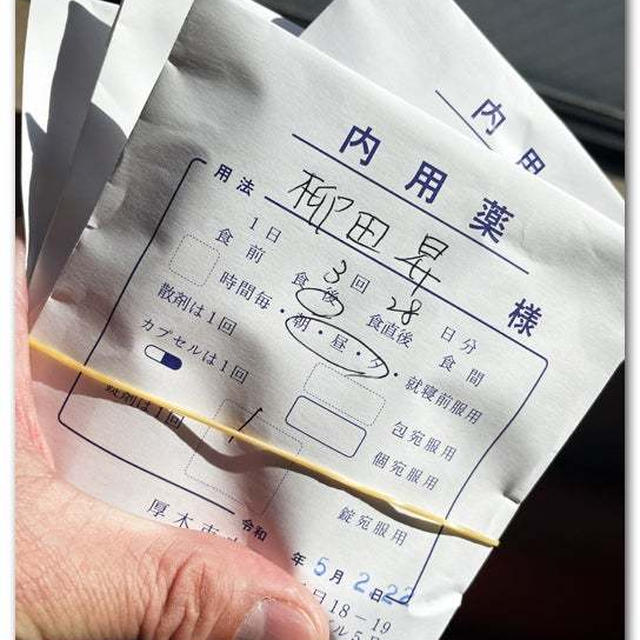 内用薬
柳田昇 様
用法
1日 3回 28日分
食前 食後 食直後 食間
時間毎・朝・昼・夕・就寝前服用
散剤は1回 包宛服用
カプセルは1回 個宛服用
錠剤は1回 1 錠宛服用
令和 年5月2日
厚木市
18-19
内用